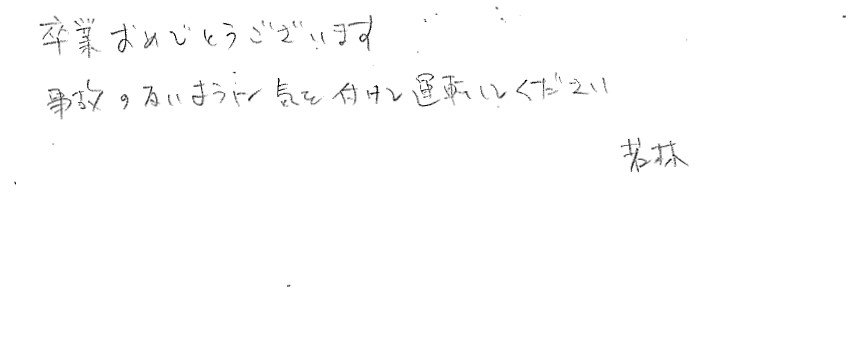 卒業おめでとうございます
事故のないように気を付けて運転してください
若林